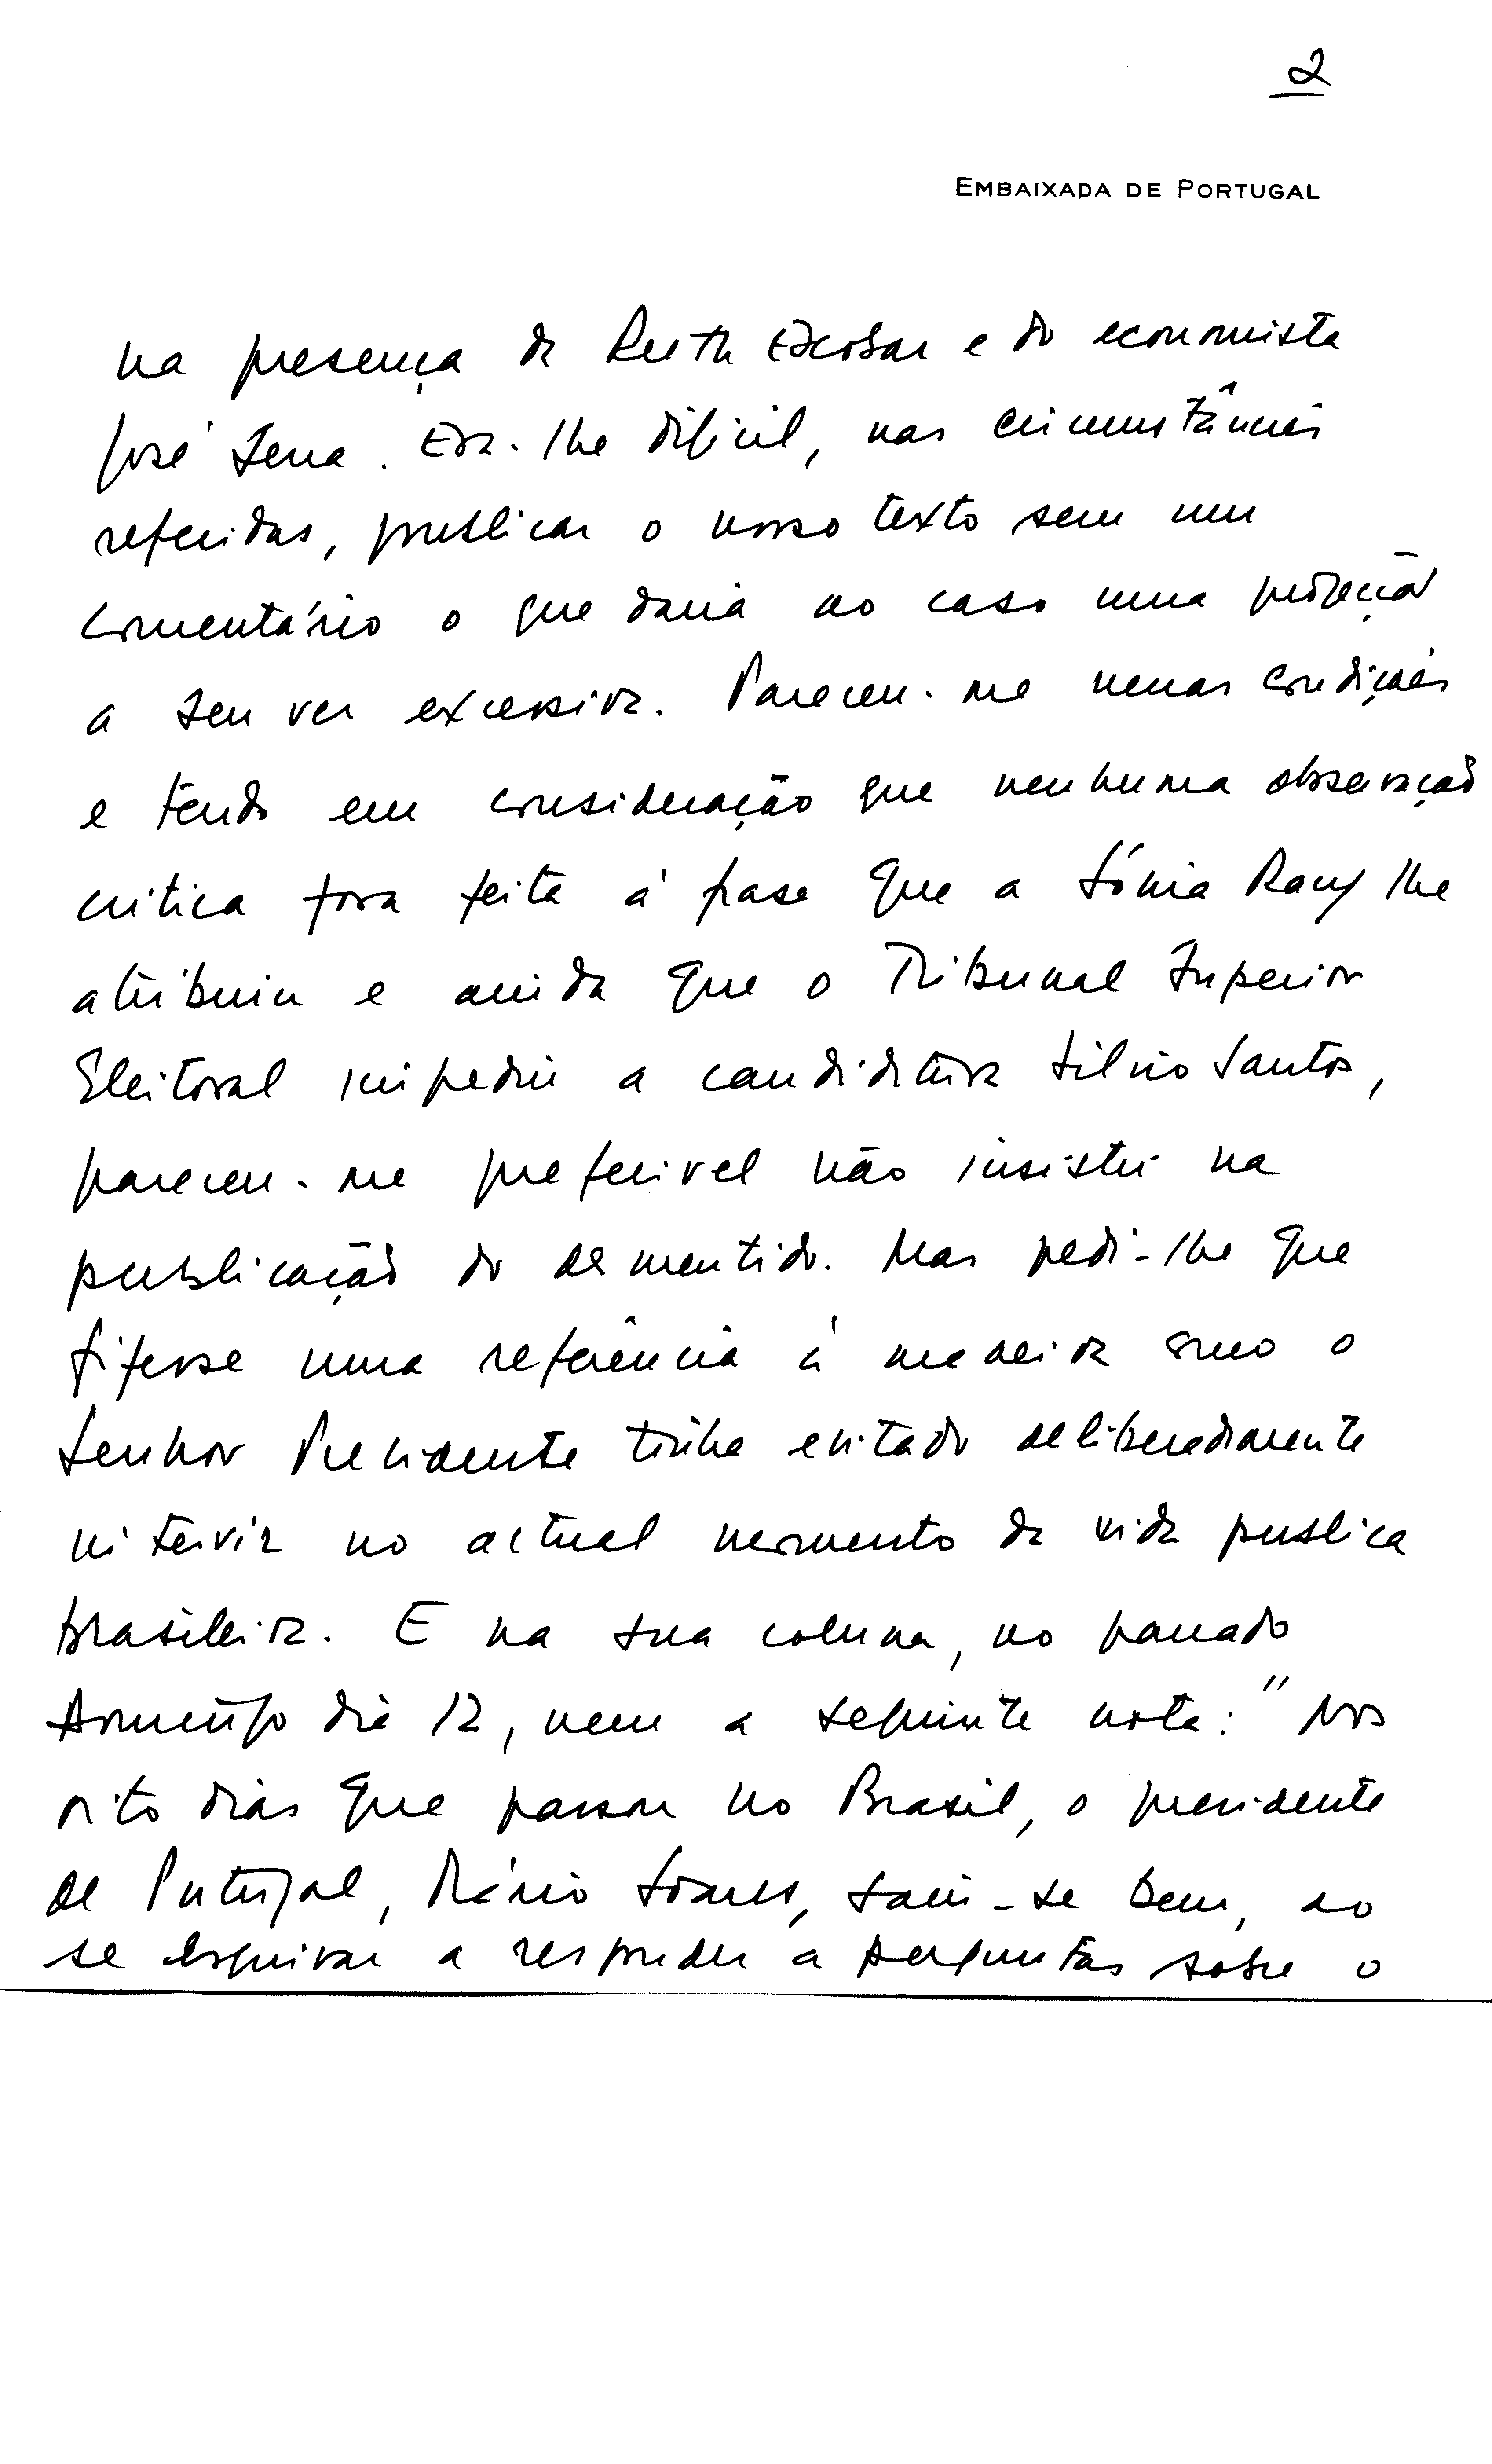 2
EMBAIXADA DE PORTUGAL
na presença de Ruth Escobar e do economista
José Serra. Era-lhe dificil, nas circunstâncias
referidas, publicar o nosso texto sem um
comentário o que daria ao caso uma projecção
a seu ver excessiva. Pareceu-me nessas condições
e tendo em consideração que nenhuma observação
critica fora feita á frase que a Sónia Racy lhe
atribuiu e ainda que o Tribunal Superior
Eleitoral impediu a candidatura Silvio Santos,
pareceu-me preferivel não insistir na
publicação do desmentido. Mas pedi-lhe que
fizesse uma referência á maneira como o
Senhor Presidente tinha evitado deliberadamente
intervir no actual momento da vida publica
brasileira. E na sua coluna, no passado
Domingo dia 12, vem a seguinte nota: "Nos
oito dias que passou no Brasil, o presidente
de Portugal, Mário Soares, saiu-se bem, ao
se esquivar a responder a perguntas sobre o